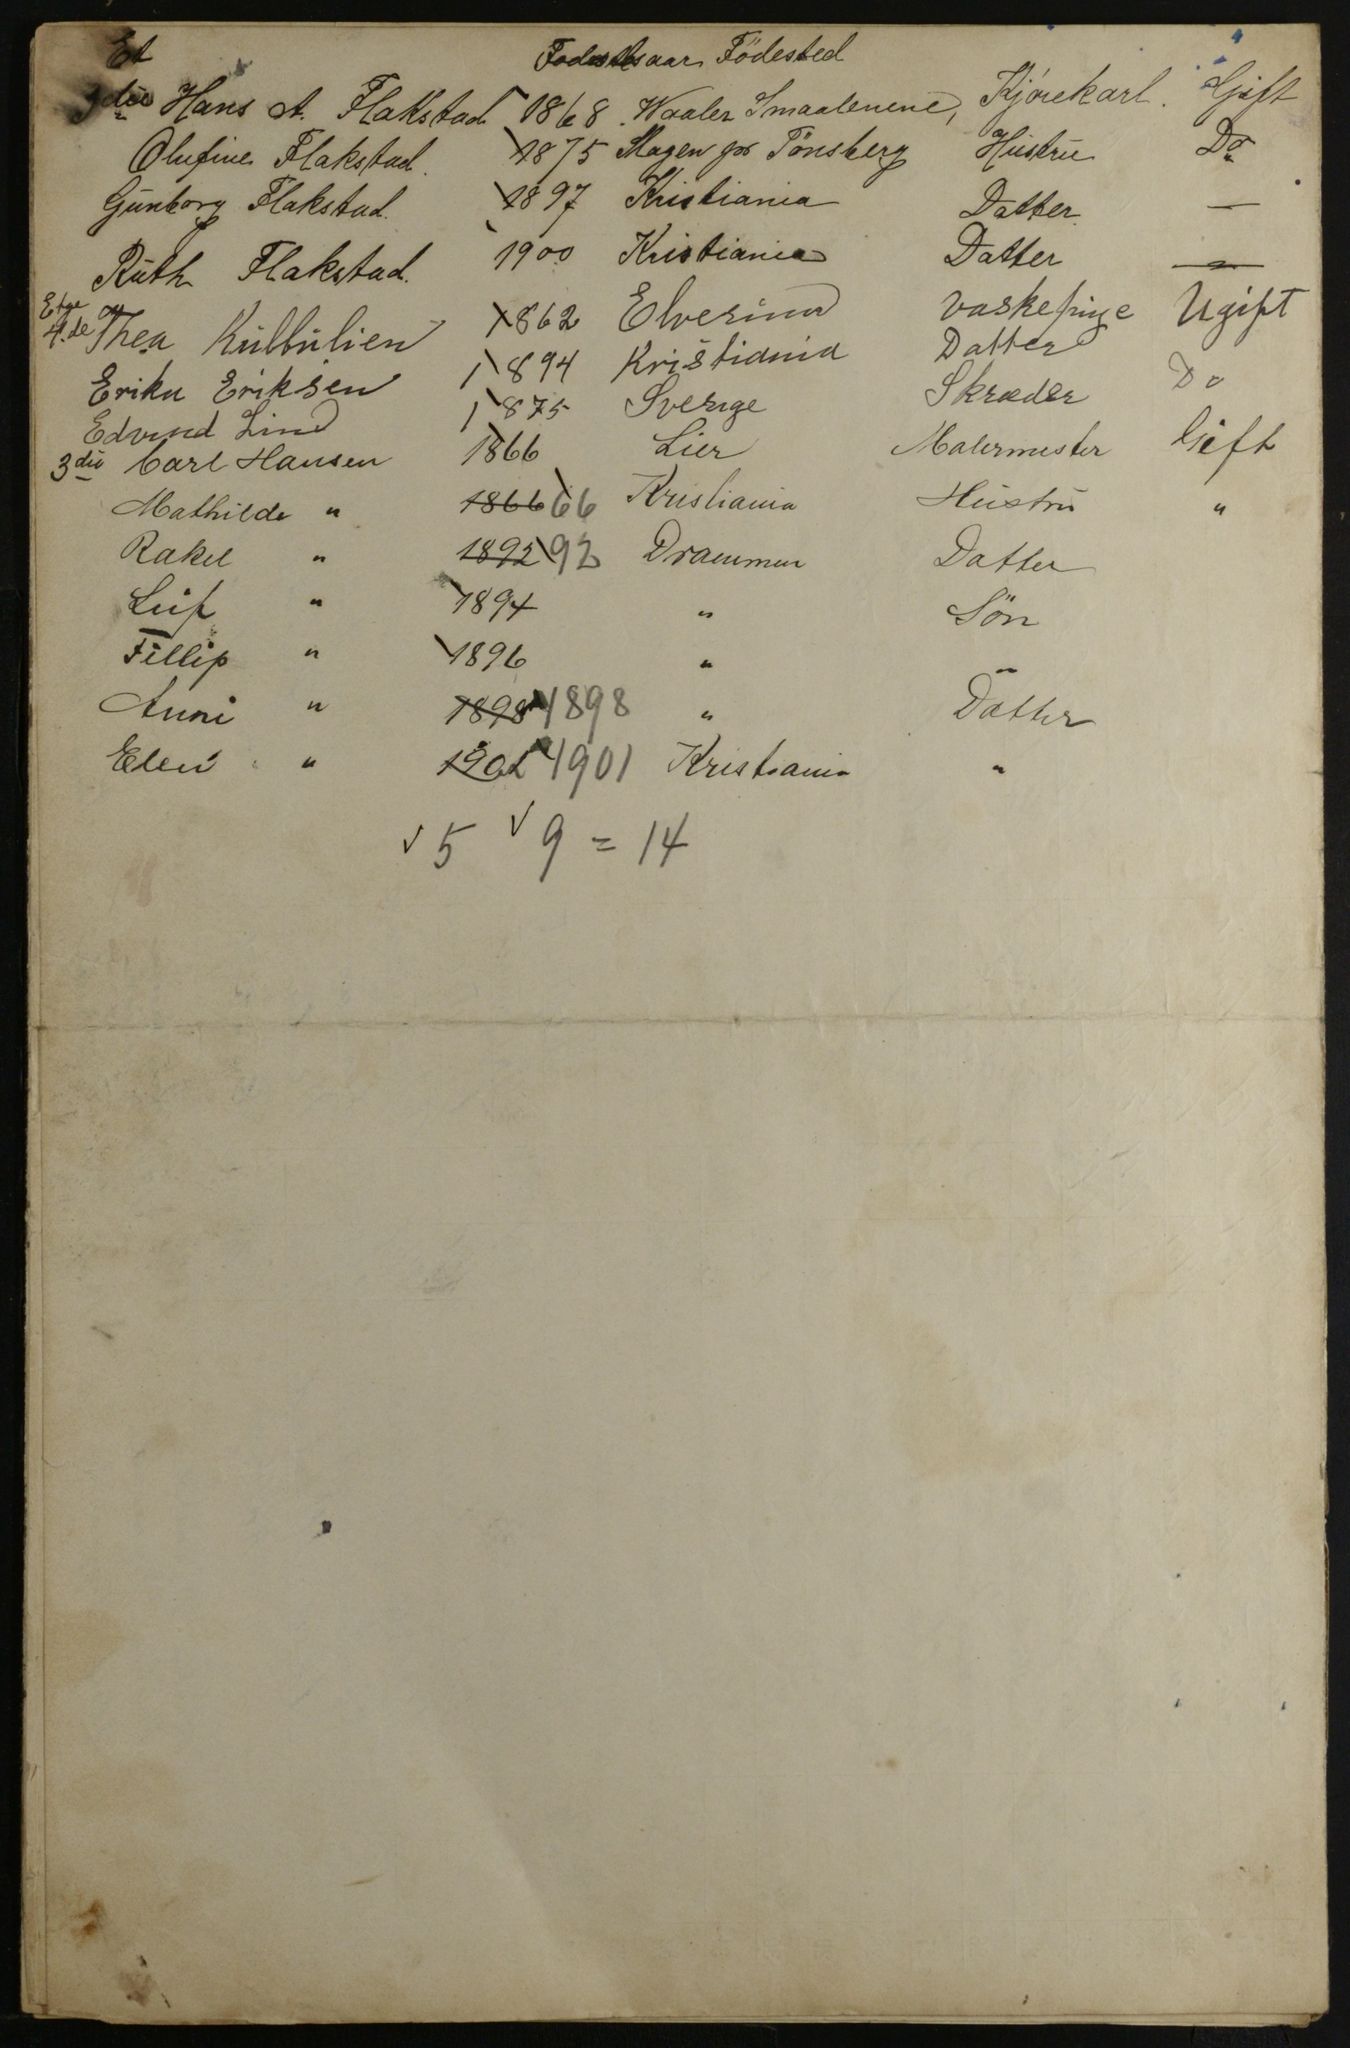 Et Fødselsaar Födested
3die Hans A. Flakstad 1868 Waaler Smaalenene, Kjørekarl. Gift
Olufine Flakstad. 1875 Slagen por Tönsberg Hüstrü Do
Günborg Flakstad. 1897 Kristiania Datter —
Rüth Flakstad. 1900 Kristiania Datter —
Etge 4.de Thea Külbülien 1862 Elverum Vaskepige Ugift
Erika Eriksen 1894 Kristiania Datter
Edvind Lind 1875 Sverige Skræder Do
3die Carl Hansen 1866 Lier Malermester Gift
Mathilde " 1866 66 Kristiania Hüstrü "
Rakel " 1892 92 Drammen Datter
Leif " 1894 " Sön
Fillip " 1896 " "
Anni " 1898 1898 " Datter
Elen " 1901 1901 Kristiania "
√ 5 √ 9 = 14